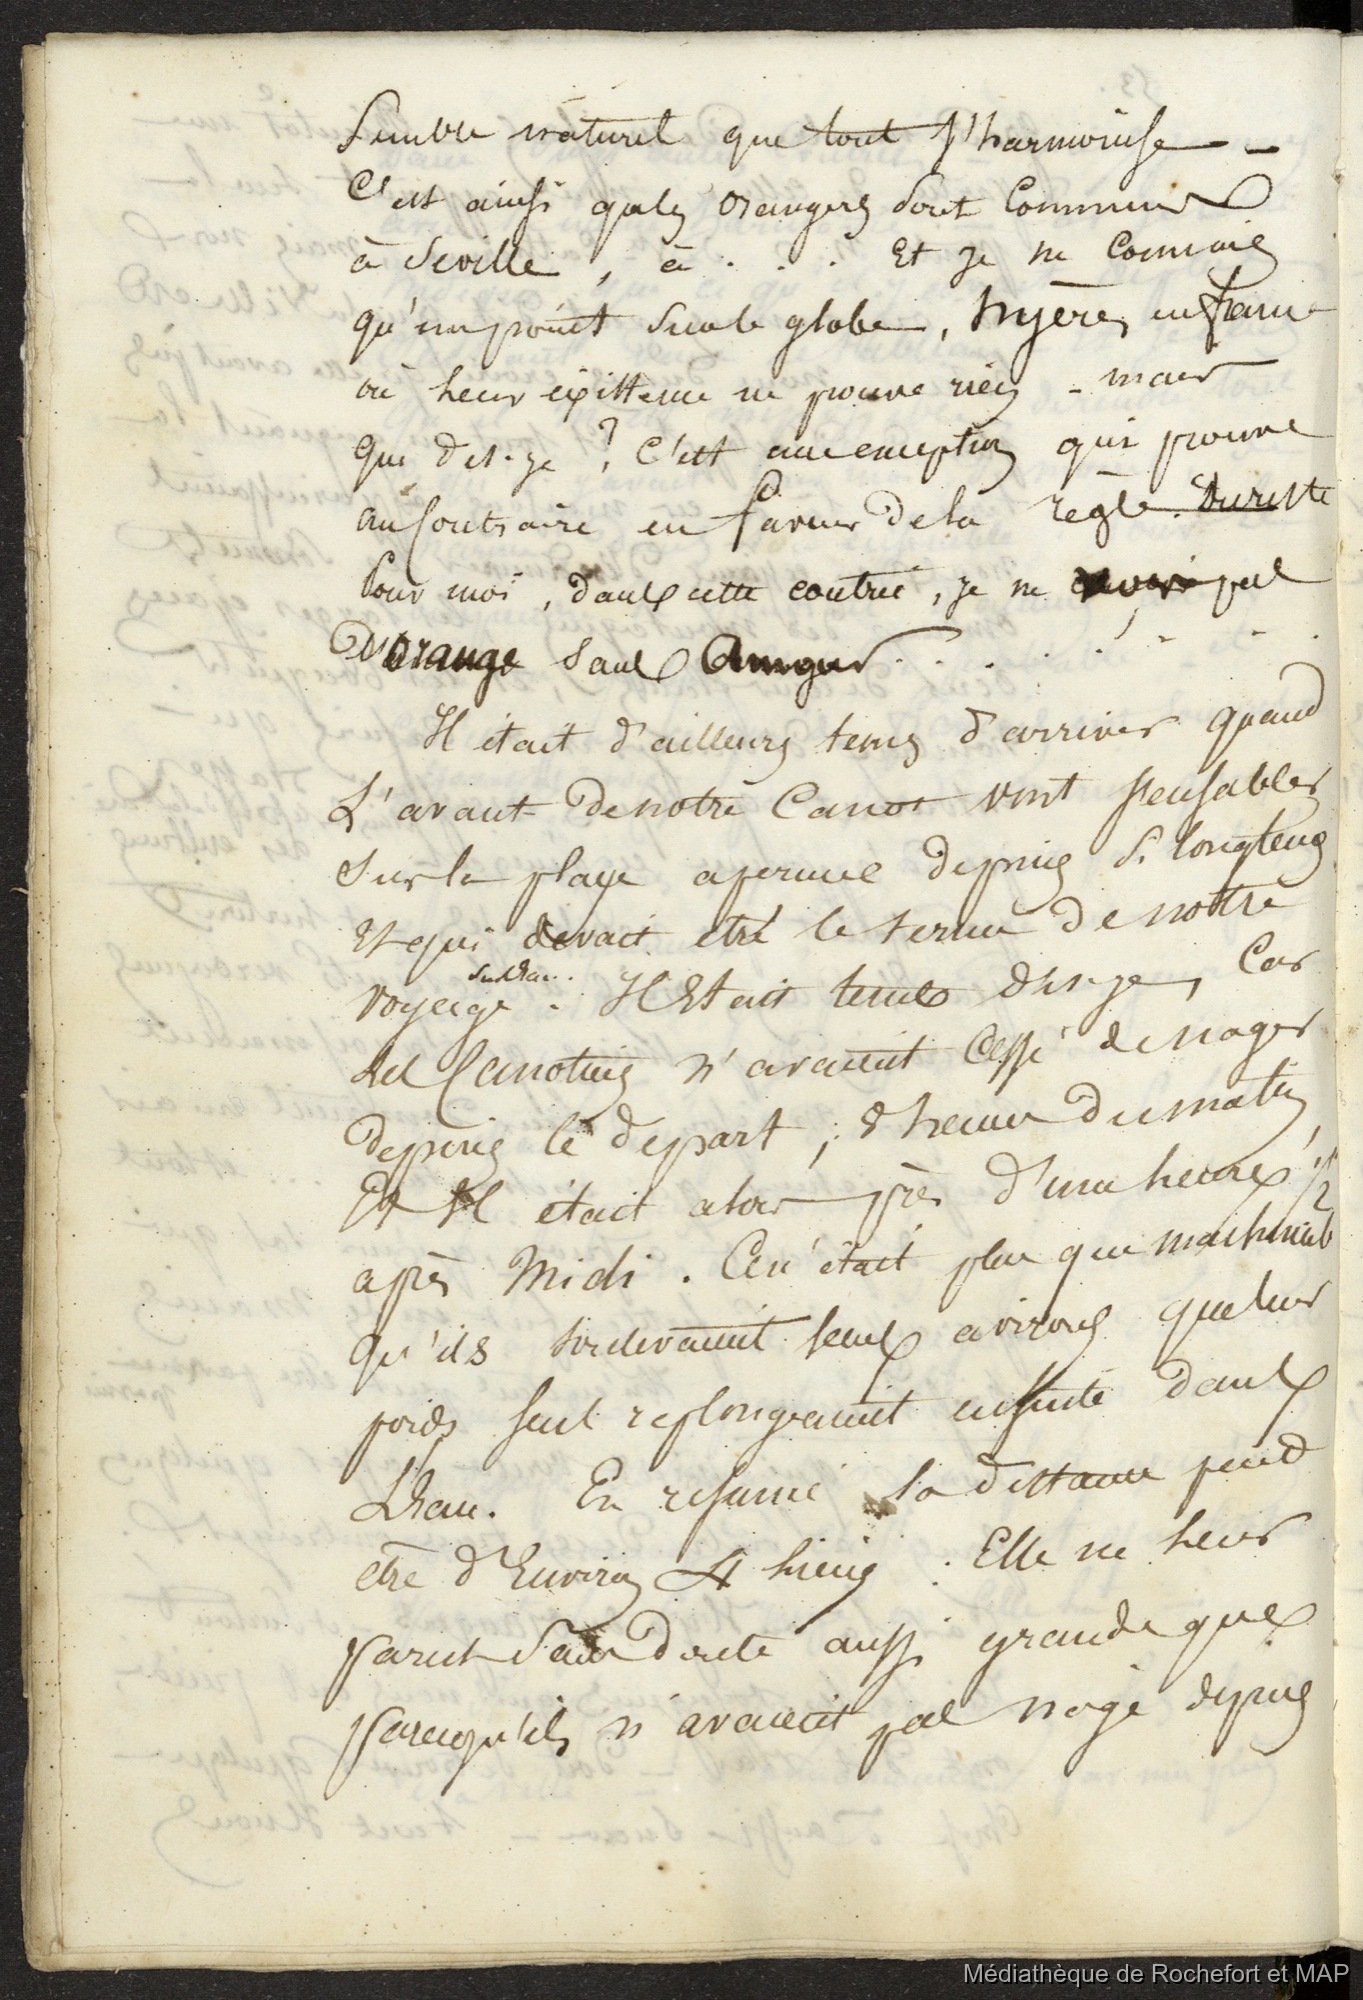 semble naturel que tout s'harmonise —
C'est ainsi que les orangers sont communs
à Seville, à . . . Et je ne connais
qu'un point sur le globe, hyères, en france
où leur existence ne prouve rien - mais
que dis-je ? C'est une exception qui prouve
au contraire en faveur de la règle. Du reste
Pour moi, dans cette contrée, je ne pas
D'orange sans Amour. . . . . . . .
Il était d'ailleurs tems d'arriver quand
L'avant de notre Canot vint s'ensabler
Sur la plage aperçue depuis si longtems
Et qui devait être le terme de notre
sur l'eau.
voyage. Il Etait tems dis-je, Car
les Canotiers n'avaient cessé de nager
depuis le départ, 8 heures du matin,
Et il était alors près d'une heure 1/2
après Midi. Ce n'était plus que machinal
qu'ils soulevaient leurs avirons que leur
poids seul replongeaient ensuite dans
L'eau. En résumé la distance peut
être d'Environ 4 lieues. Elle ne leur
parut sans doute aussi grande que
parcequ'ils n'avaient pas nagé depuis
Médiathèque de Rochefort et MAP